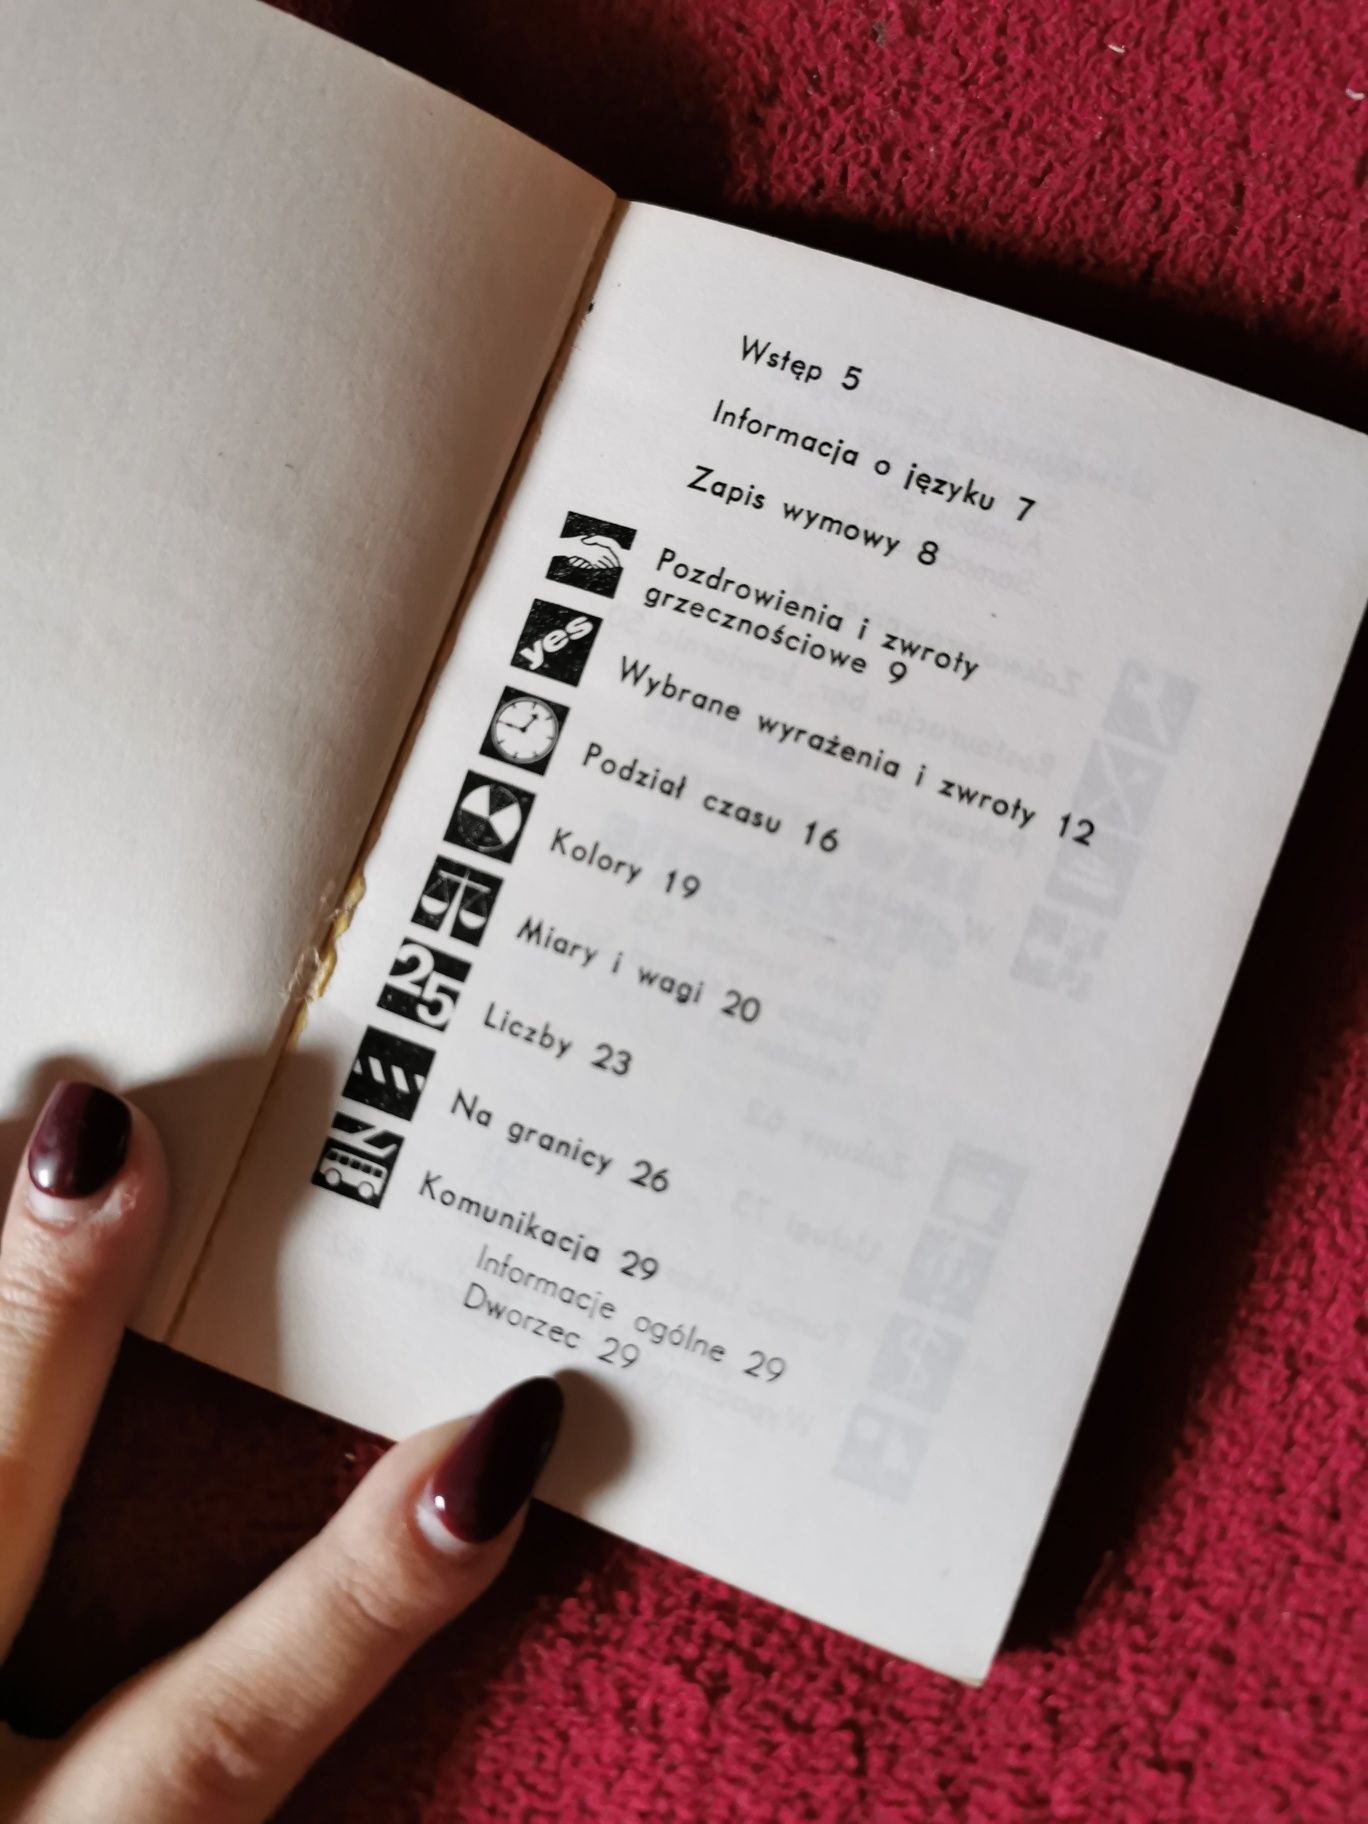 Wstęp 5
Informacja o języku 7
Zapis wymowy 8
Pozdrowienia i zwroty
grzecznościowe 9
yes
Wybrane wyrażenia i zwroty 12
Podział czasu 16
Kolory 19
Miary i wagi 20
25
Liczby 23
Na granicy 26
Komunikacja 29
Informacje ogólne 29
Dworzec 29